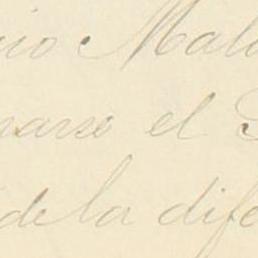 cio Mala
narse el S
de la dife